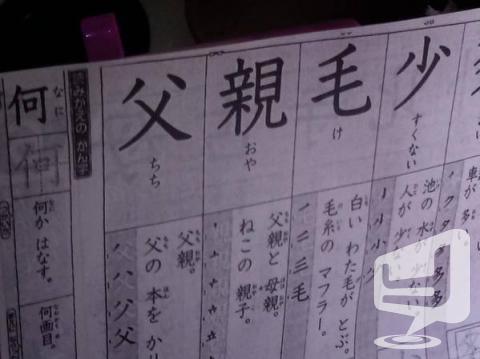 車が 多い。
タ 多 多
少
すくない
池の 水が 少ない。
人が 少ない。
毛
け
白い わた毛が とぶ。
毛糸の マフラー。
一 二 三 毛
親
おや
父親と 母親。
ねこの 親子。
父
ちち
父親。
父の 本を かり
父 父
読みかえの かん字
何
なに
何
何か はなす。
何回目。